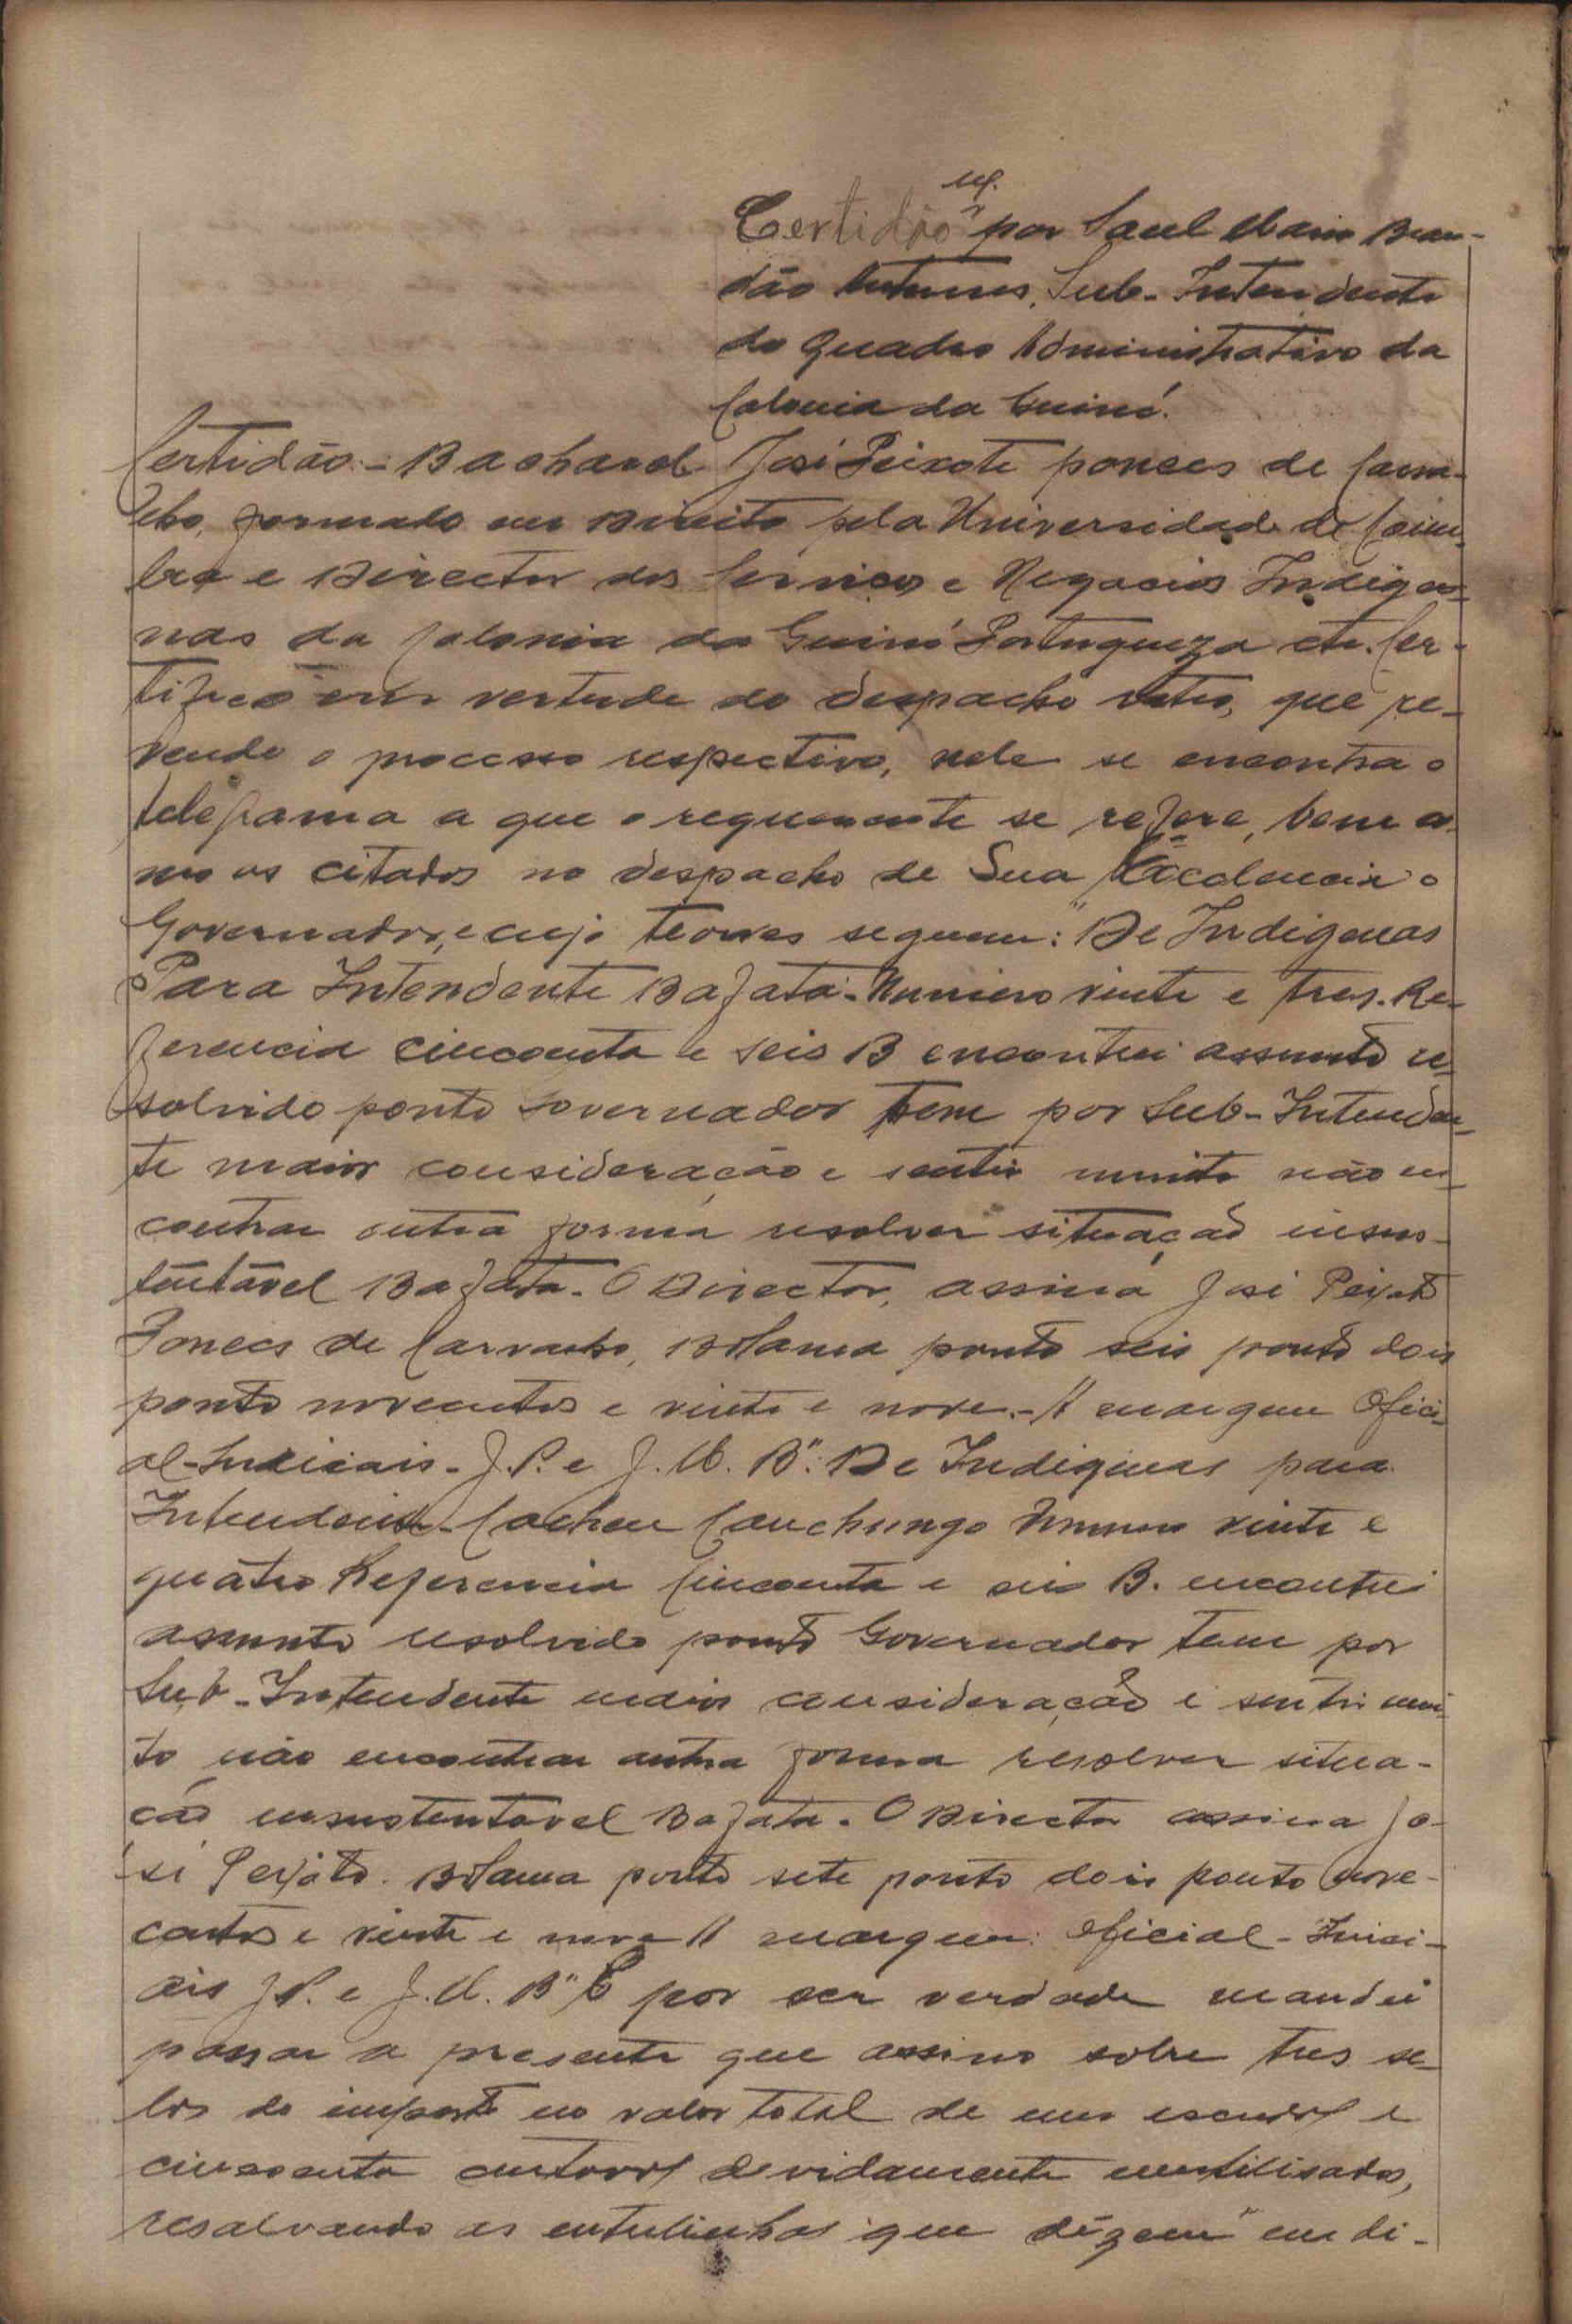 Certidão por Saul Mario Bran-
dão Antunes, Sub-Intendente
do Quadro Administrativo da
Colonia da Guiné.
Certidão - Bacharel José Peixoto ponces de Carva-
lho, formado em Direito pela Universidade de Coim-
bra e Director dos Serviços e Negocios Indige-
nas da Colonia da Guiné Portugueza etc. Cer-
tifico em vertude do despacho retro, que re-
vendo o processo respectivo, nele se encontra o
telegrama a que o requerente se refere, bem co-
mo os citados no despacho de Sua Excelencia o
Governador, e cujo teores seguem: "De Indigenas
Para Intendente Bafatá - Numero vinte e tres. Re-
ferencia cincoenta e seis B encontrei assunto re-
solvido ponto Governador tem por Sub-Intenden-
te maior consideração e sentiu muito não en-
contrar outra forma resolver situação insus-
tentável Bafata. O Director, assina José Peixoto
Ponces de Carvalho, Bolama ponto seis ponto dois
ponto novecentos e vinte e nove. - Á margem Ofici-
al - Iniciais - J. P. e J. M. B". De Indigenas para
Intendencia - Cacheu Canchungo Numero vinte e
quatro Referencia Cincoenta e seis B. encontrei
assunto resolvido ponto Governador tem por
Sub-Intendente maior consideração e sentiu mui-
to não encontrar outra forma resolver situa-
ção insustentavel Bafata. O Director assina Jo-
sé Peixoto. Bolama ponto sete ponto dois ponto nove-
centos e vinte e nove Á margem: Oficial - Inici-
ais J P. e J. M. B" E por ser verdade mandei
passar a presente que assino sobre tres se-
los do imposto no valor total de um escudo e
cincoenta centavos devidamente inutilisados,
resalvando as entrelinhas que dizem "em di-